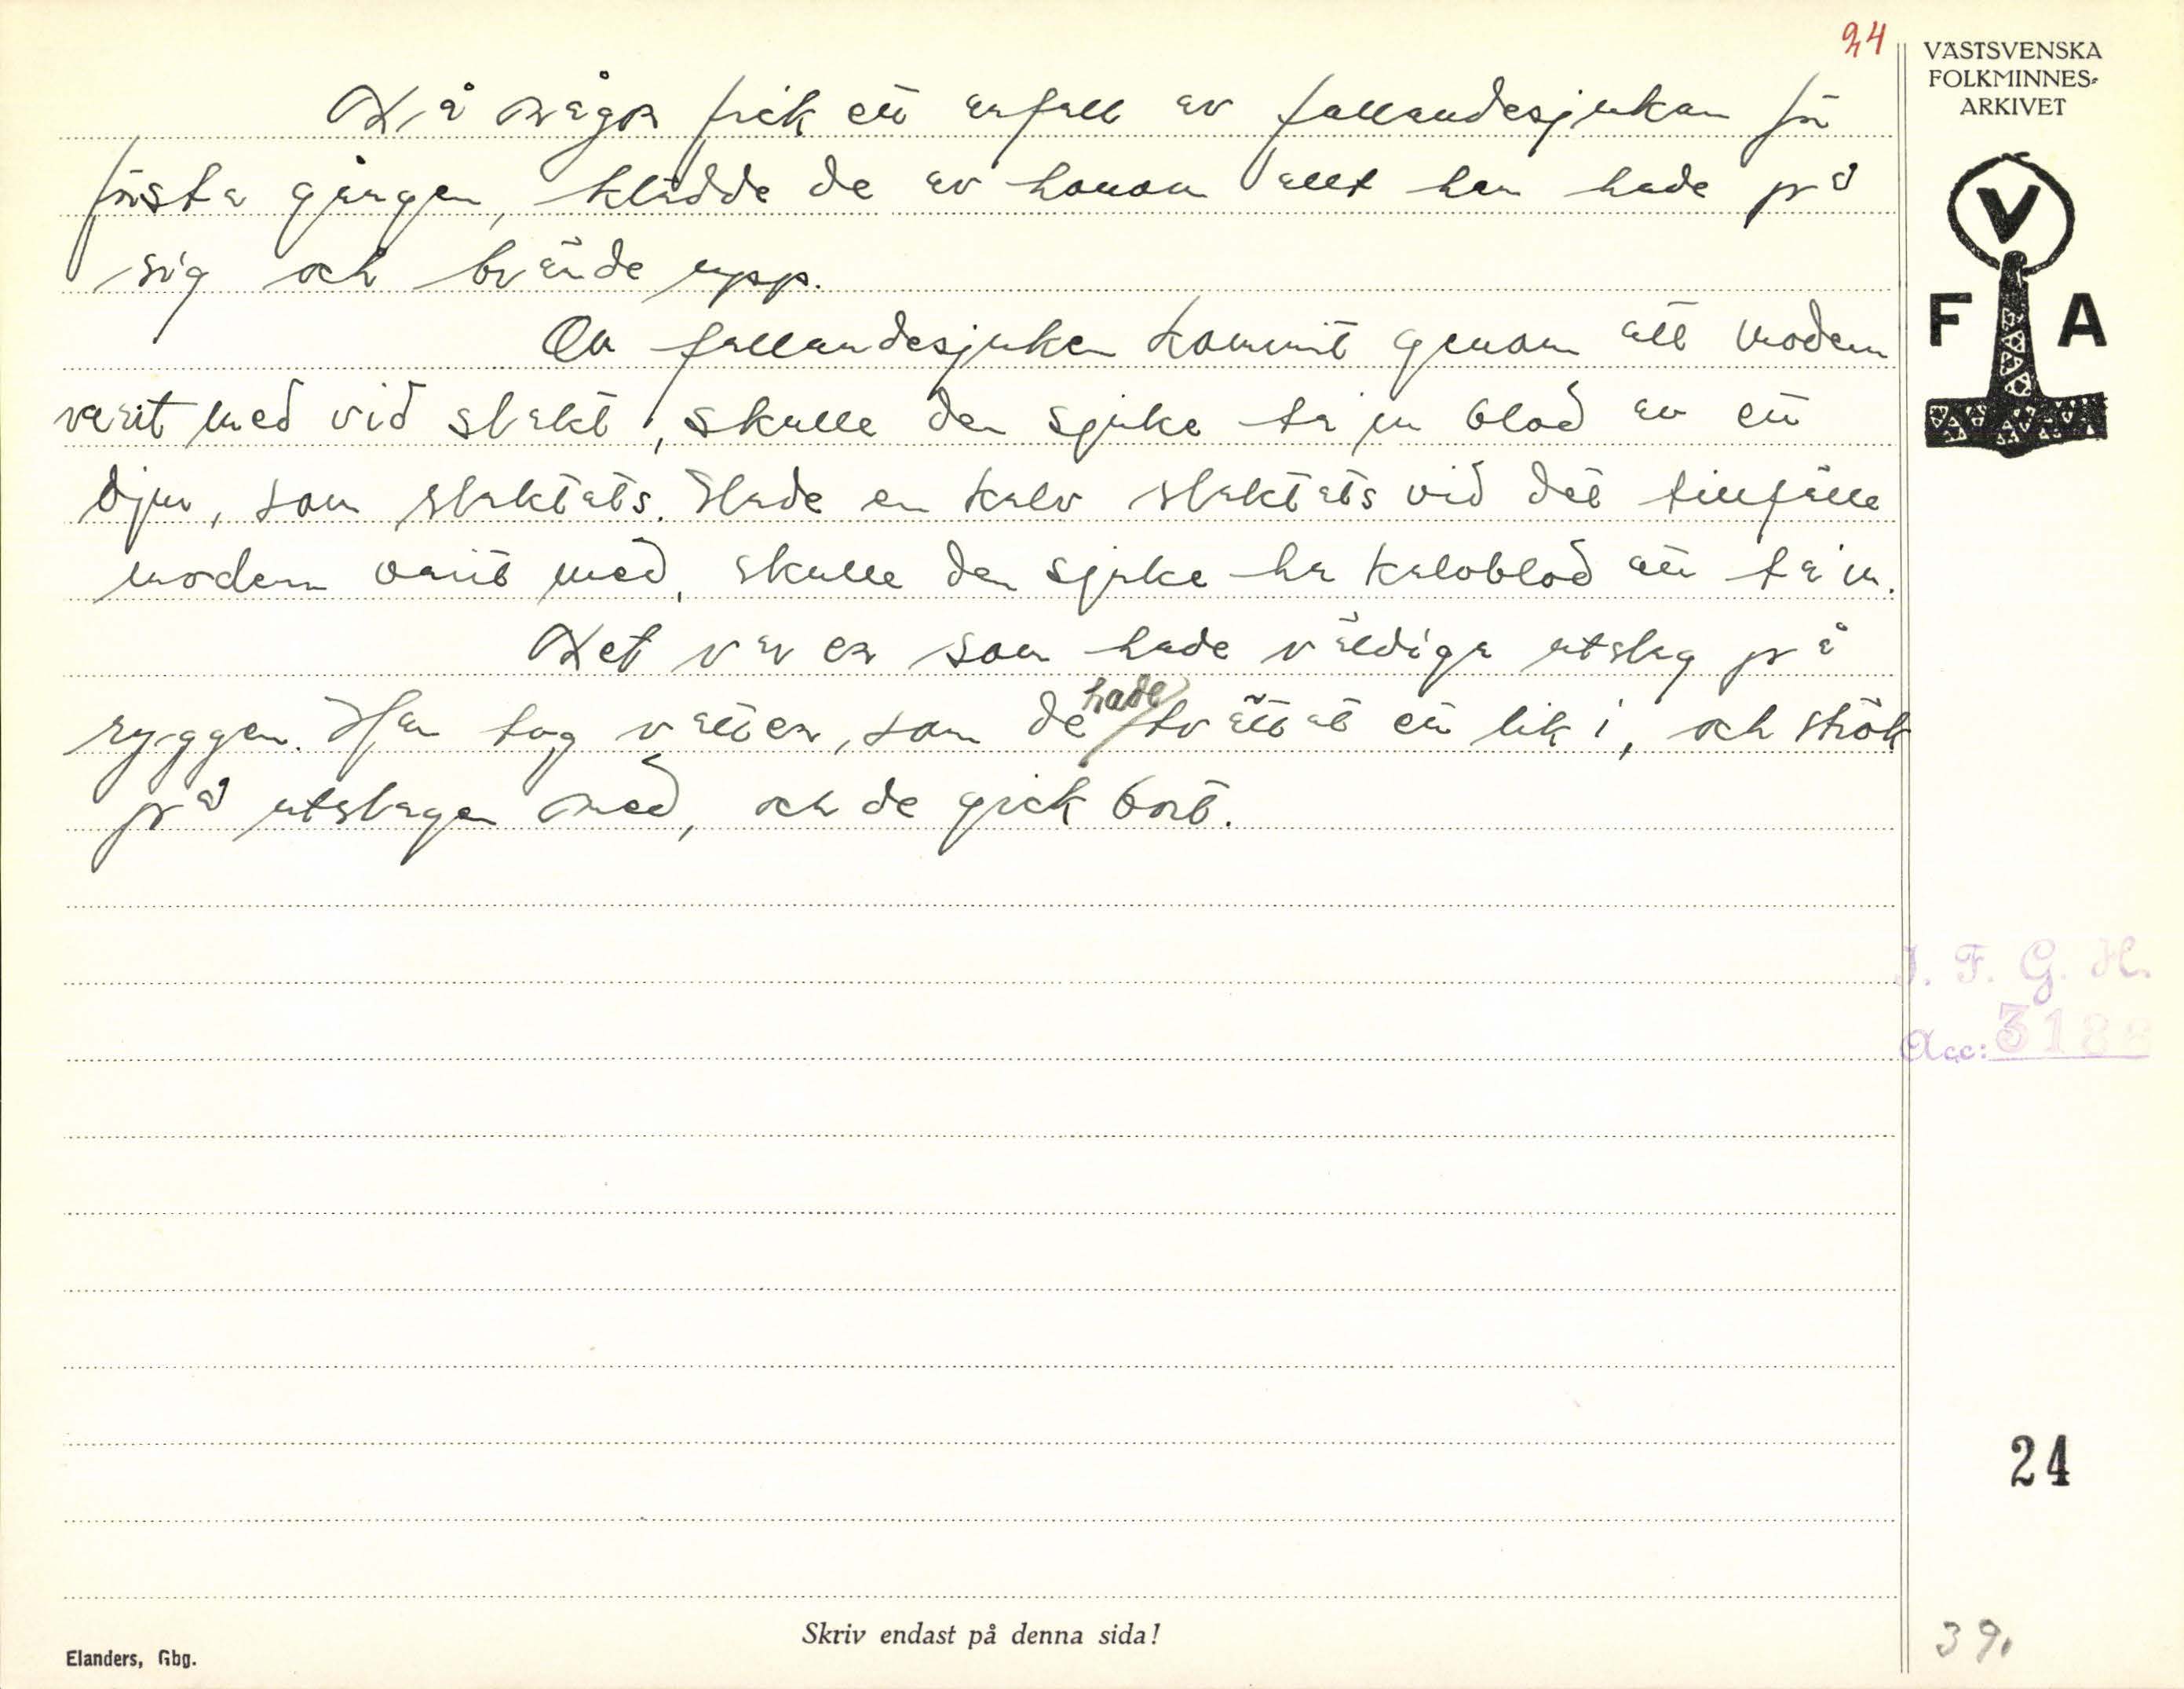 24
VÄSTSVENSKA
FOLKMINNES-
ARKIVET
Då någon fick ett anfall av fallandesjukan för
första gången, klädde de av honom allt han hade på
sig och brände upp.
Om fallandesjukan kommit genom att modern
varit med vid slakt, skulle den sjuke ta in blod av ett
djur, som slaktats. Hade en kalv slaktats vid det tillfälle
modern varit med, skulle den sjuke ha kalvblod att ta in.
Det var en som hade väldiga utslag på
ryggen. Han tog vatten, som de hade tvättat ett lik i, och strök
på utslagen med, och de gick bort.
V
F A
I. F. G. H.
Acc: 3188
24
39.
Skriv endast på denna sida!
Elanders, Gbg.